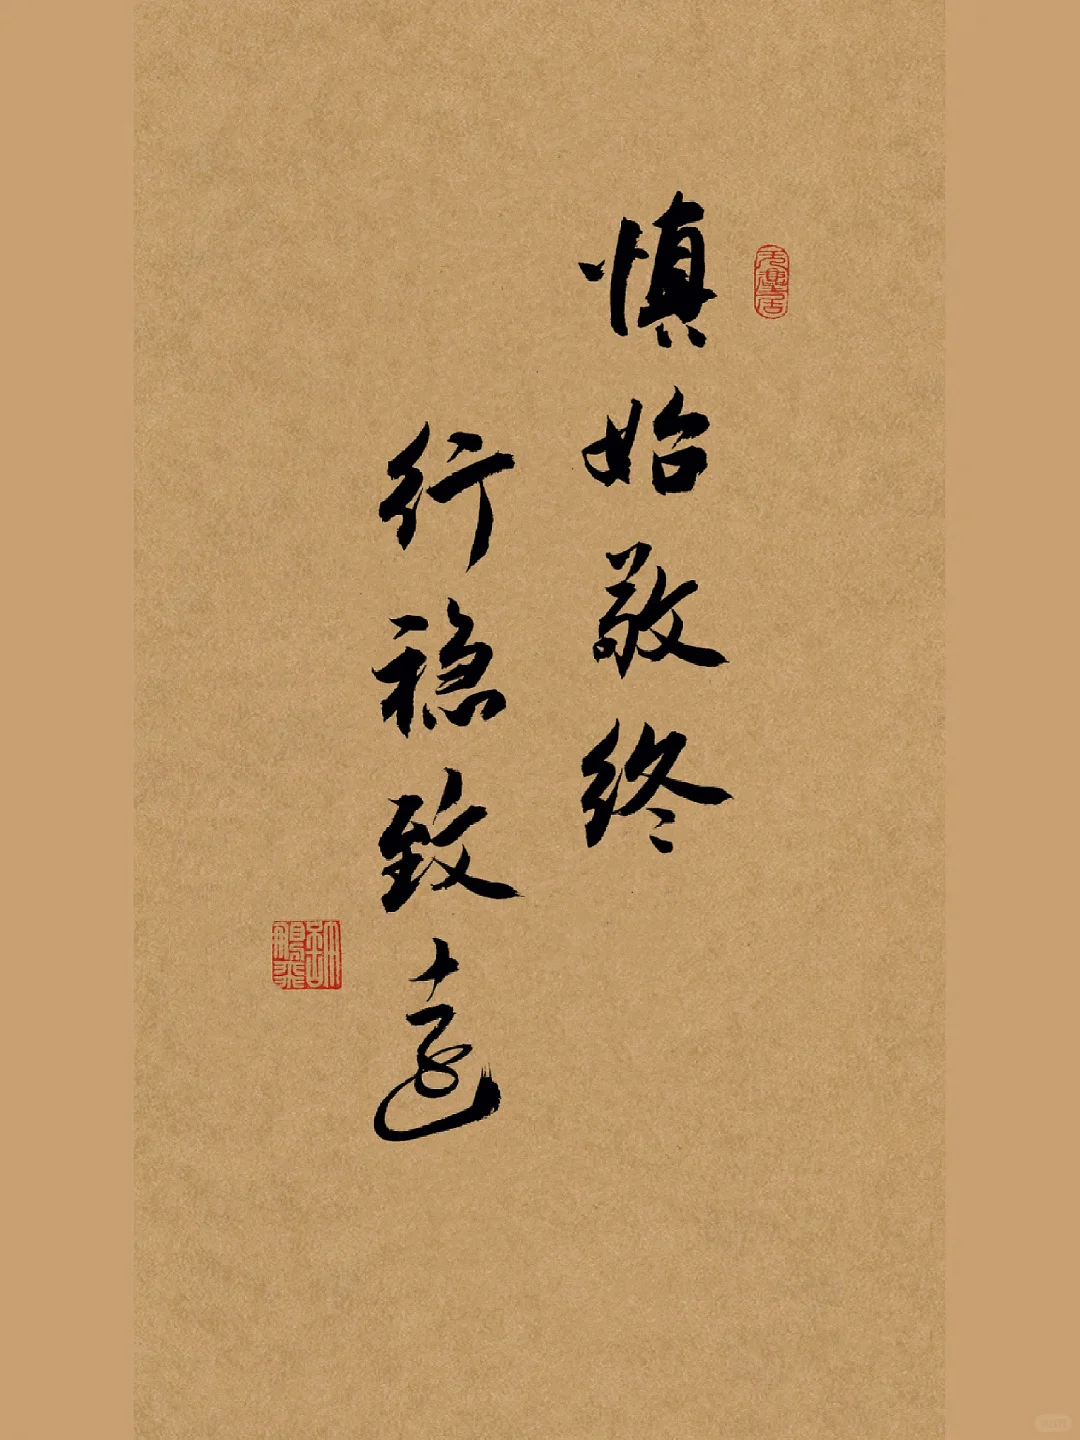 慎始敬终
行稳致远